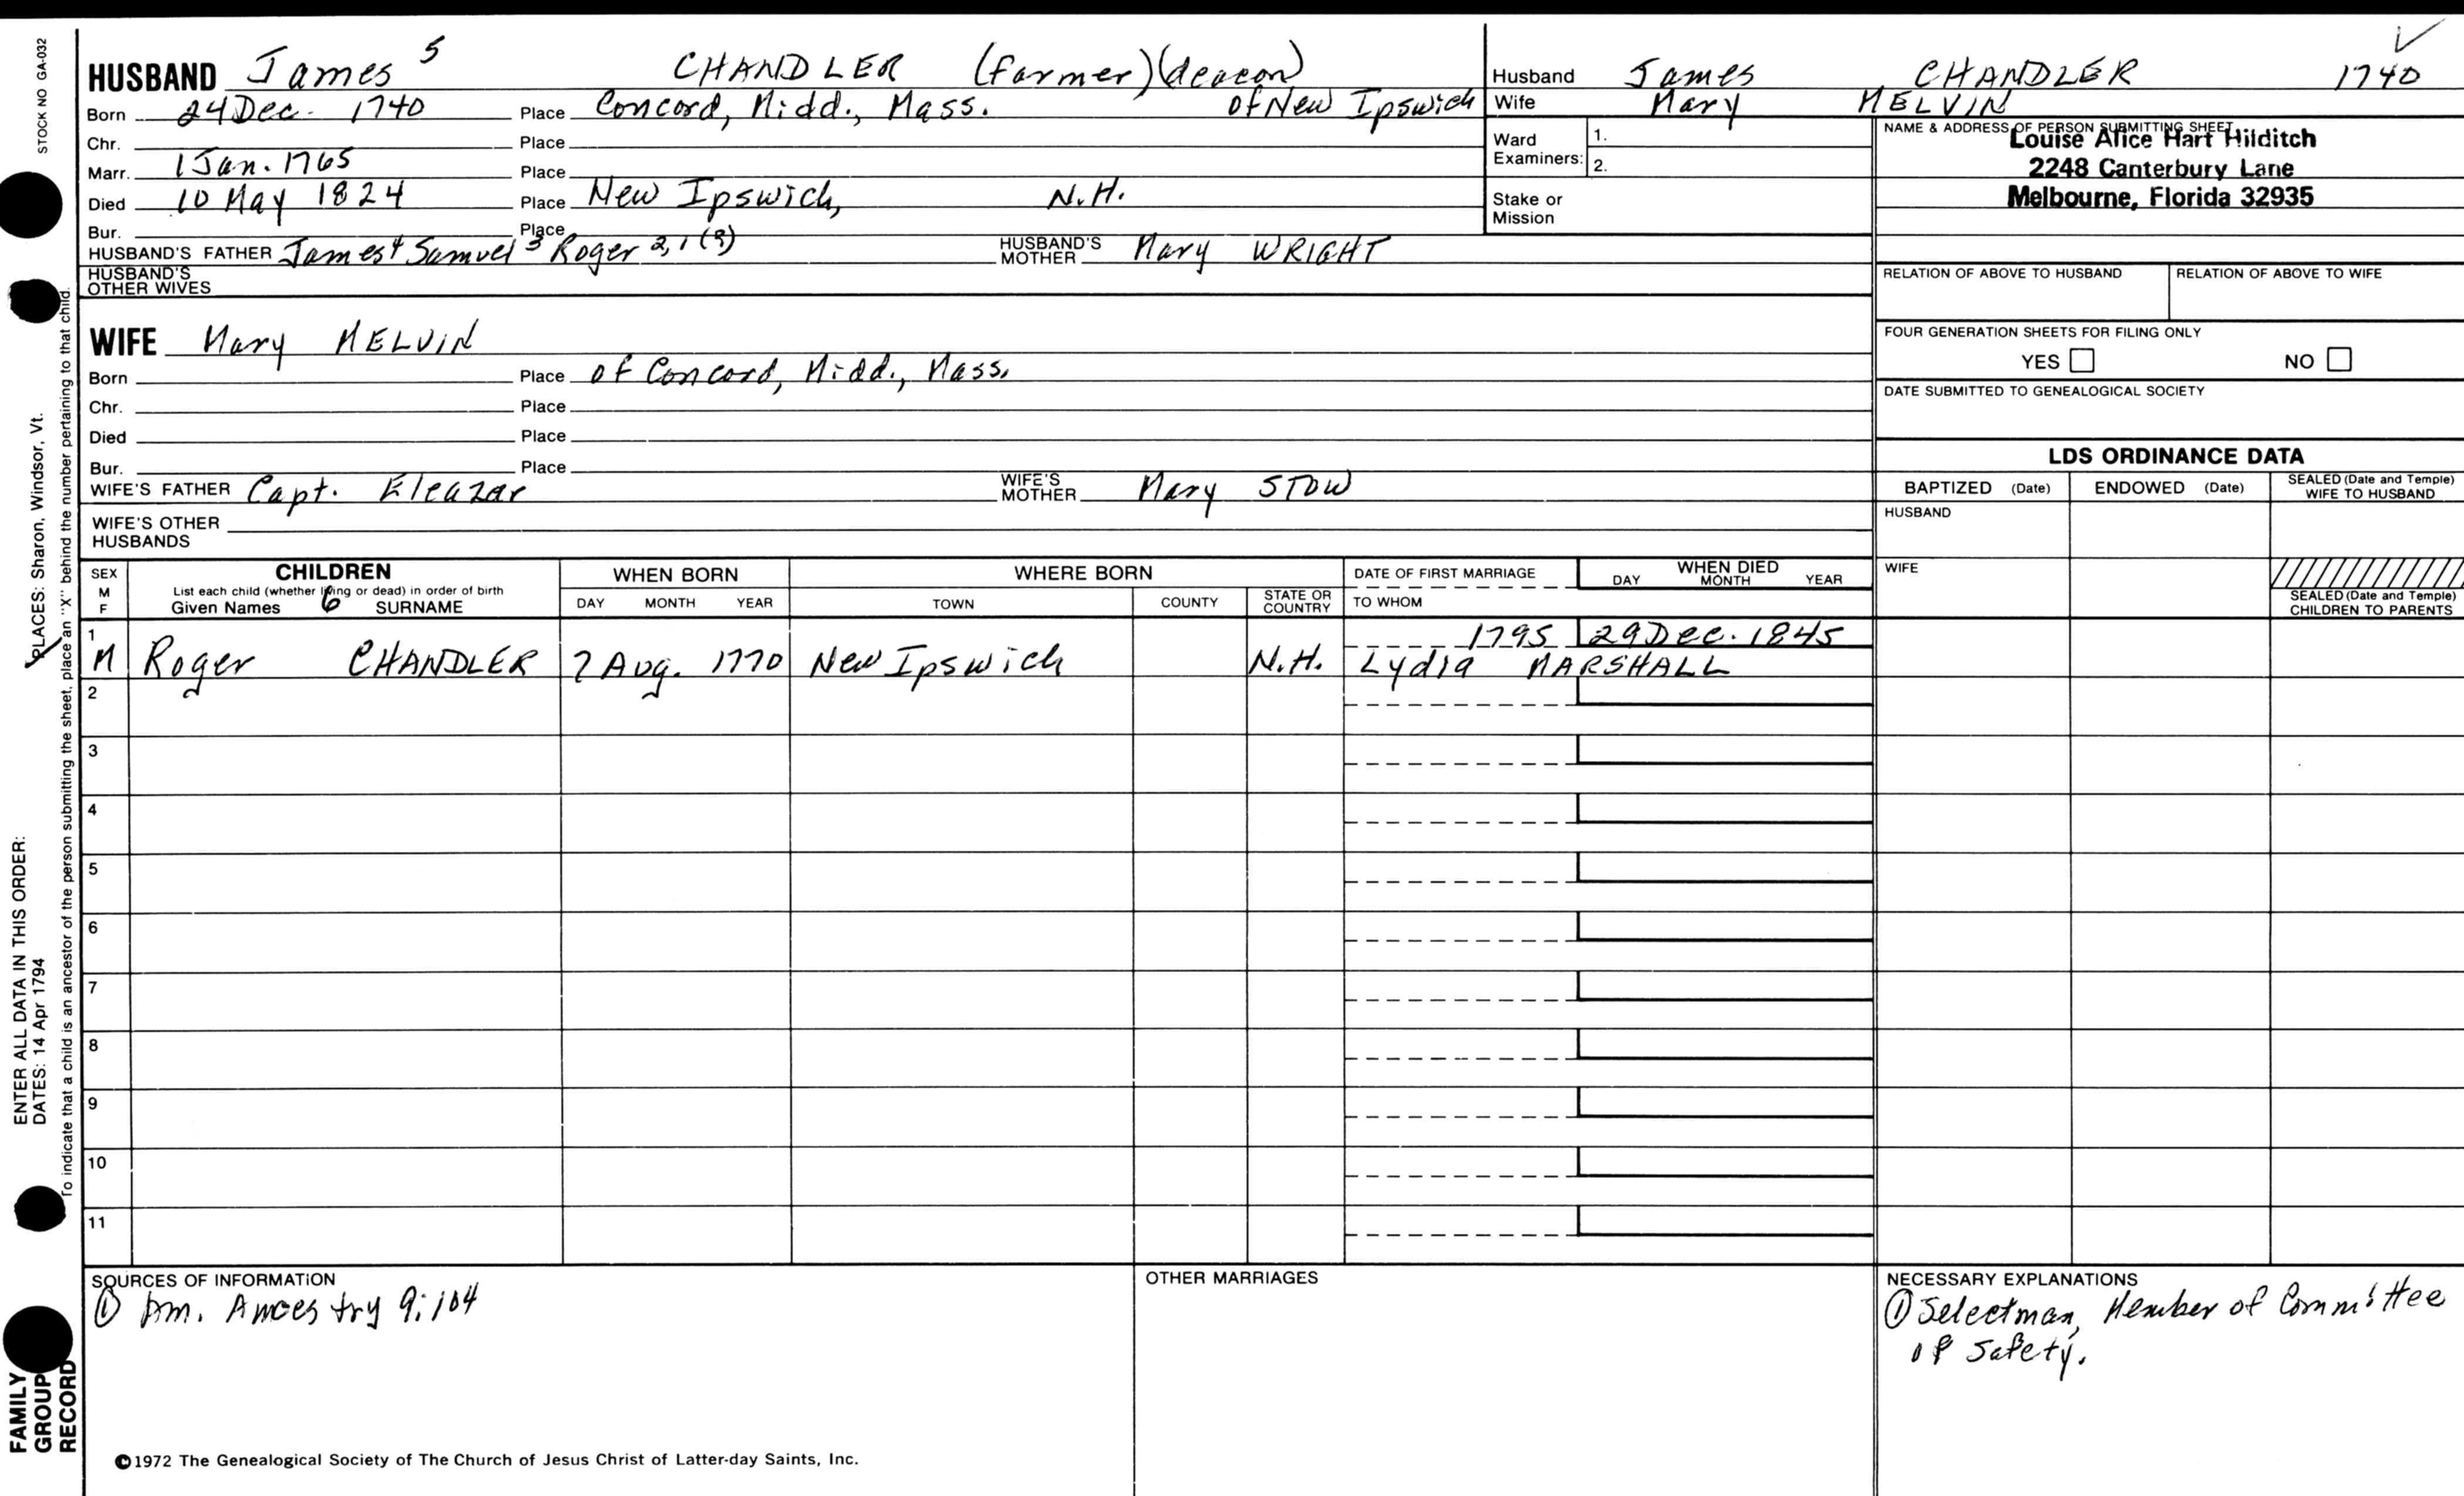 STOCK NO GA-032
HUSBAND James 5 CHANDLER (farmer)(deacon)
Born 24 Dec. 1740 Place Concord, Midd., Mass. of New Ipswich
Chr. Place
Marr. 1 Jan. 1765 Place
Died 10 May 1824 Place New Ipswich, N.H.
Bur. Place
HUSBAND'S FATHER James 4 Samuel 3 Roger 2,1 (?)
HUSBAND'S MOTHER Mary WRIGHT
HUSBAND'S OTHER WIVES
WIFE Mary MELVIN
Born Place of Concord, Midd., Mass.
Chr. Place
Died Place
Bur. Place
WIFE'S FATHER Capt. Eleazar
WIFE'S MOTHER Mary STOW
WIFE'S OTHER HUSBANDS
Husband James CHANDLER 1740
Wife Mary MELVIN
Ward Examiners: 1.
2.
Stake or Mission
NAME & ADDRESS OF PERSON SUBMITTING SHEET
Louise Alice Hart Hilditch
2248 Canterbury Lane
Melbourne, Florida 32935
RELATION OF ABOVE TO HUSBAND RELATION OF ABOVE TO WIFE
FOUR GENERATION SHEETS FOR FILING ONLY
YES NO
DATE SUBMITTED TO GENEALOGICAL SOCIETY
LDS ORDINANCE DATA
BAPTIZED (Date) ENDOWED (Date) SEALED (Date and Temple) WIFE TO HUSBAND
HUSBAND
WIFE
SEALED (Date and Temple) CHILDREN TO PARENTS
SEX M F
CHILDREN
List each child (whether living or dead) in order of birth
Given Names 6 SURNAME
WHEN BORN
DAY MONTH YEAR
WHERE BORN
TOWN COUNTY STATE OR COUNTRY
DATE OF FIRST MARRIAGE
TO WHOM
WHEN DIED
DAY MONTH YEAR
1 1795 29 Dec. 1845
M Roger CHANDLER 7 Aug. 1770 New Ipswich N.H. Lydia MARSHALL
2
3
4
5
6
7
8
9
10
11
SOURCES OF INFORMATION
① Am. Ancestry 9:104
OTHER MARRIAGES
NECESSARY EXPLANATIONS
① Selectman, Member of Committee
of Safety.
©1972 The Genealogical Society of The Church of Jesus Christ of Latter-day Saints, Inc.
ENTER ALL DATA IN THIS ORDER:
DATES: 14 Apr 1794 PLACES: Sharon, Windsor, Vt.
To indicate that a child is an ancestor of the person submitting the sheet, place an "X" behind the number pertaining to that child.
FAMILY
GROUP
RECORD